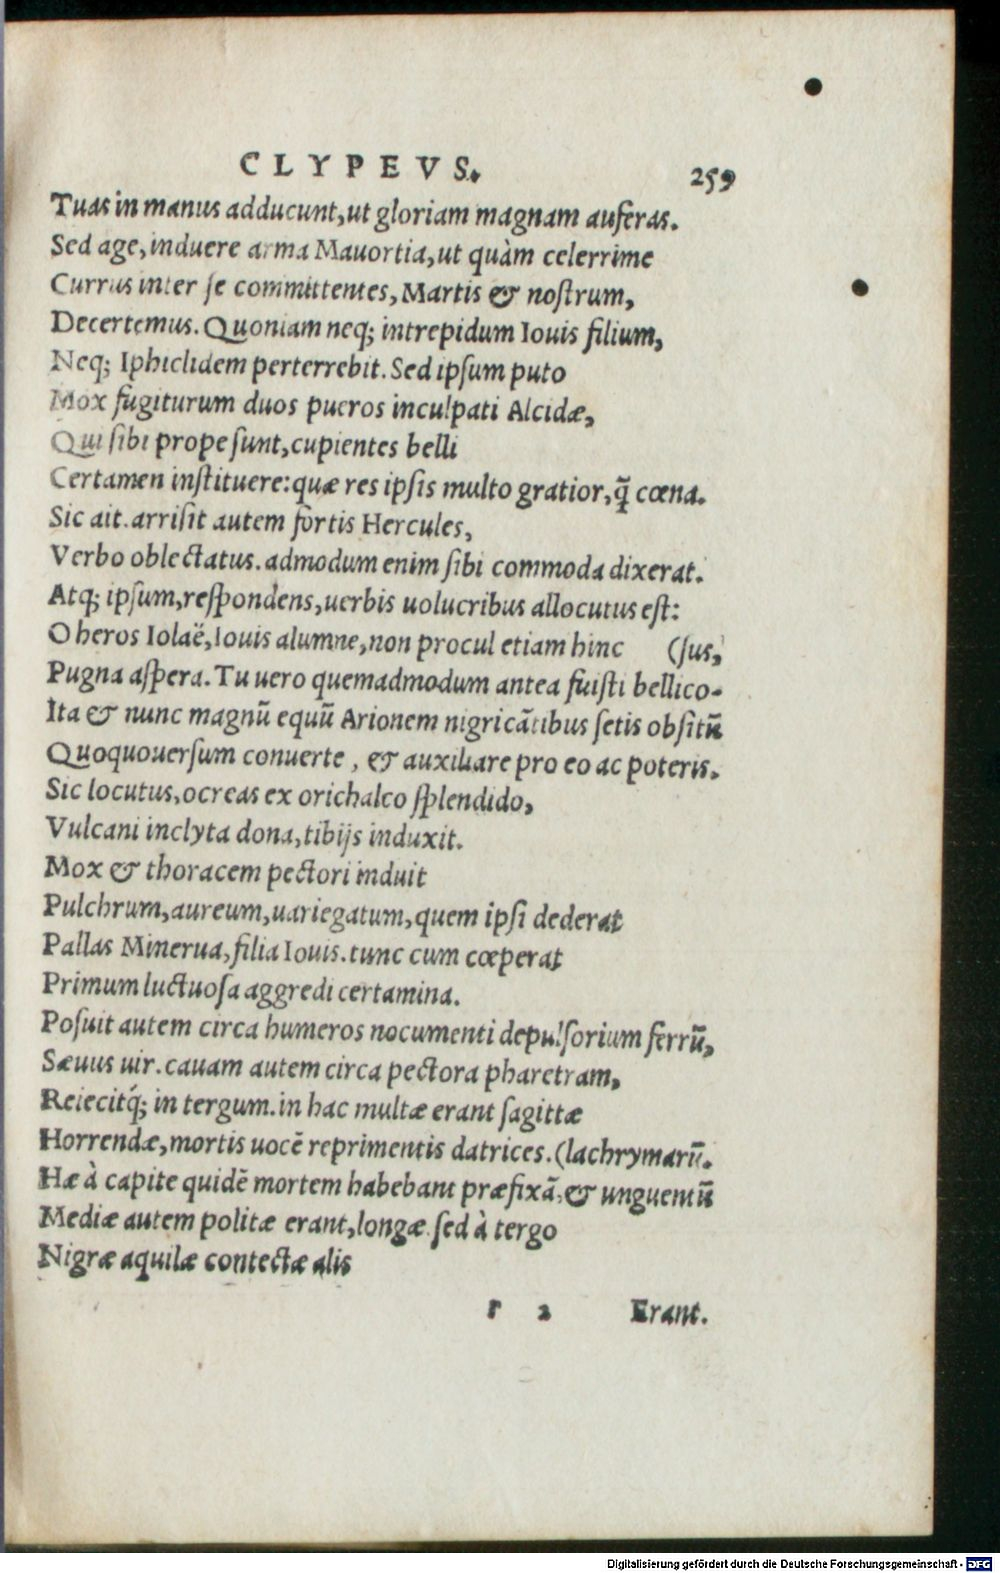 CLYPEVS. 259
Tuas in manus adducunt,ut gloriam magnam auferas.
Sed age,induere arma Mauortia,ut quàm celerrime
Currus inter se committentes,Martis & nostrum,
Decertemus. Quoniam neq; intrepidum Iouis filium,
Neq; Iphiclidem perterrebit. Sed ipsum puto
Mox fugiturum duos pueros inculpati Alcidæ,
Qui sibi prope sunt,cupientes belli
Certamen instituere:quæ res ipsis multo gratior,q̃ cœna.
Sic ait.arrisit autem fortis Hercules,
Verbo oblectatus.admodum enim sibi commoda dixerat.
Atq; ipsum,respondens,uerbis uolucribus allocutus est:
O heros Iolaë,Iouis alumne,non procul etiam hinc (sus,
Pugna aspera. Tu uero quemadmodum antea fuisti bellico-
Ita & nunc magnũ equũ Arionem nigricãtibus setis obsitũ
Quoquouersum conuerte , & auxiliare pro eo ac poteris.
Sic locutus,ocreas ex orichalco splendido,
Vulcani inclyta dona,tibijs induxit.
Mox & thoracem pectori induit
Pulchrum,aureum,uariegatum,quem ipsi dederat
Pallas Minerua,filia Iouis.tunc cum cœperat
Primum luctuosa aggredi certamina.
Posuit autem circa humeros nocumenti depulsorium ferrũ,
Sæuus uir.cauam autem circa pectora pharetram,
Reiecitq́; in tergum.in hac multæ erant sagittæ
Horrendæ,mortis uocẽ reprimentis datrices.(lachrymarũ.
Hæ à capite quidẽ mortem habebant præfixã,& unguentũ
Mediæ autem politæ erant,longæ.sed à tergo
Nigræ aquilæ contectæ alis
r 2 Erant.
Digitalisierung gefördert durch die Deutsche Forschungsgemeinschaft - DFG